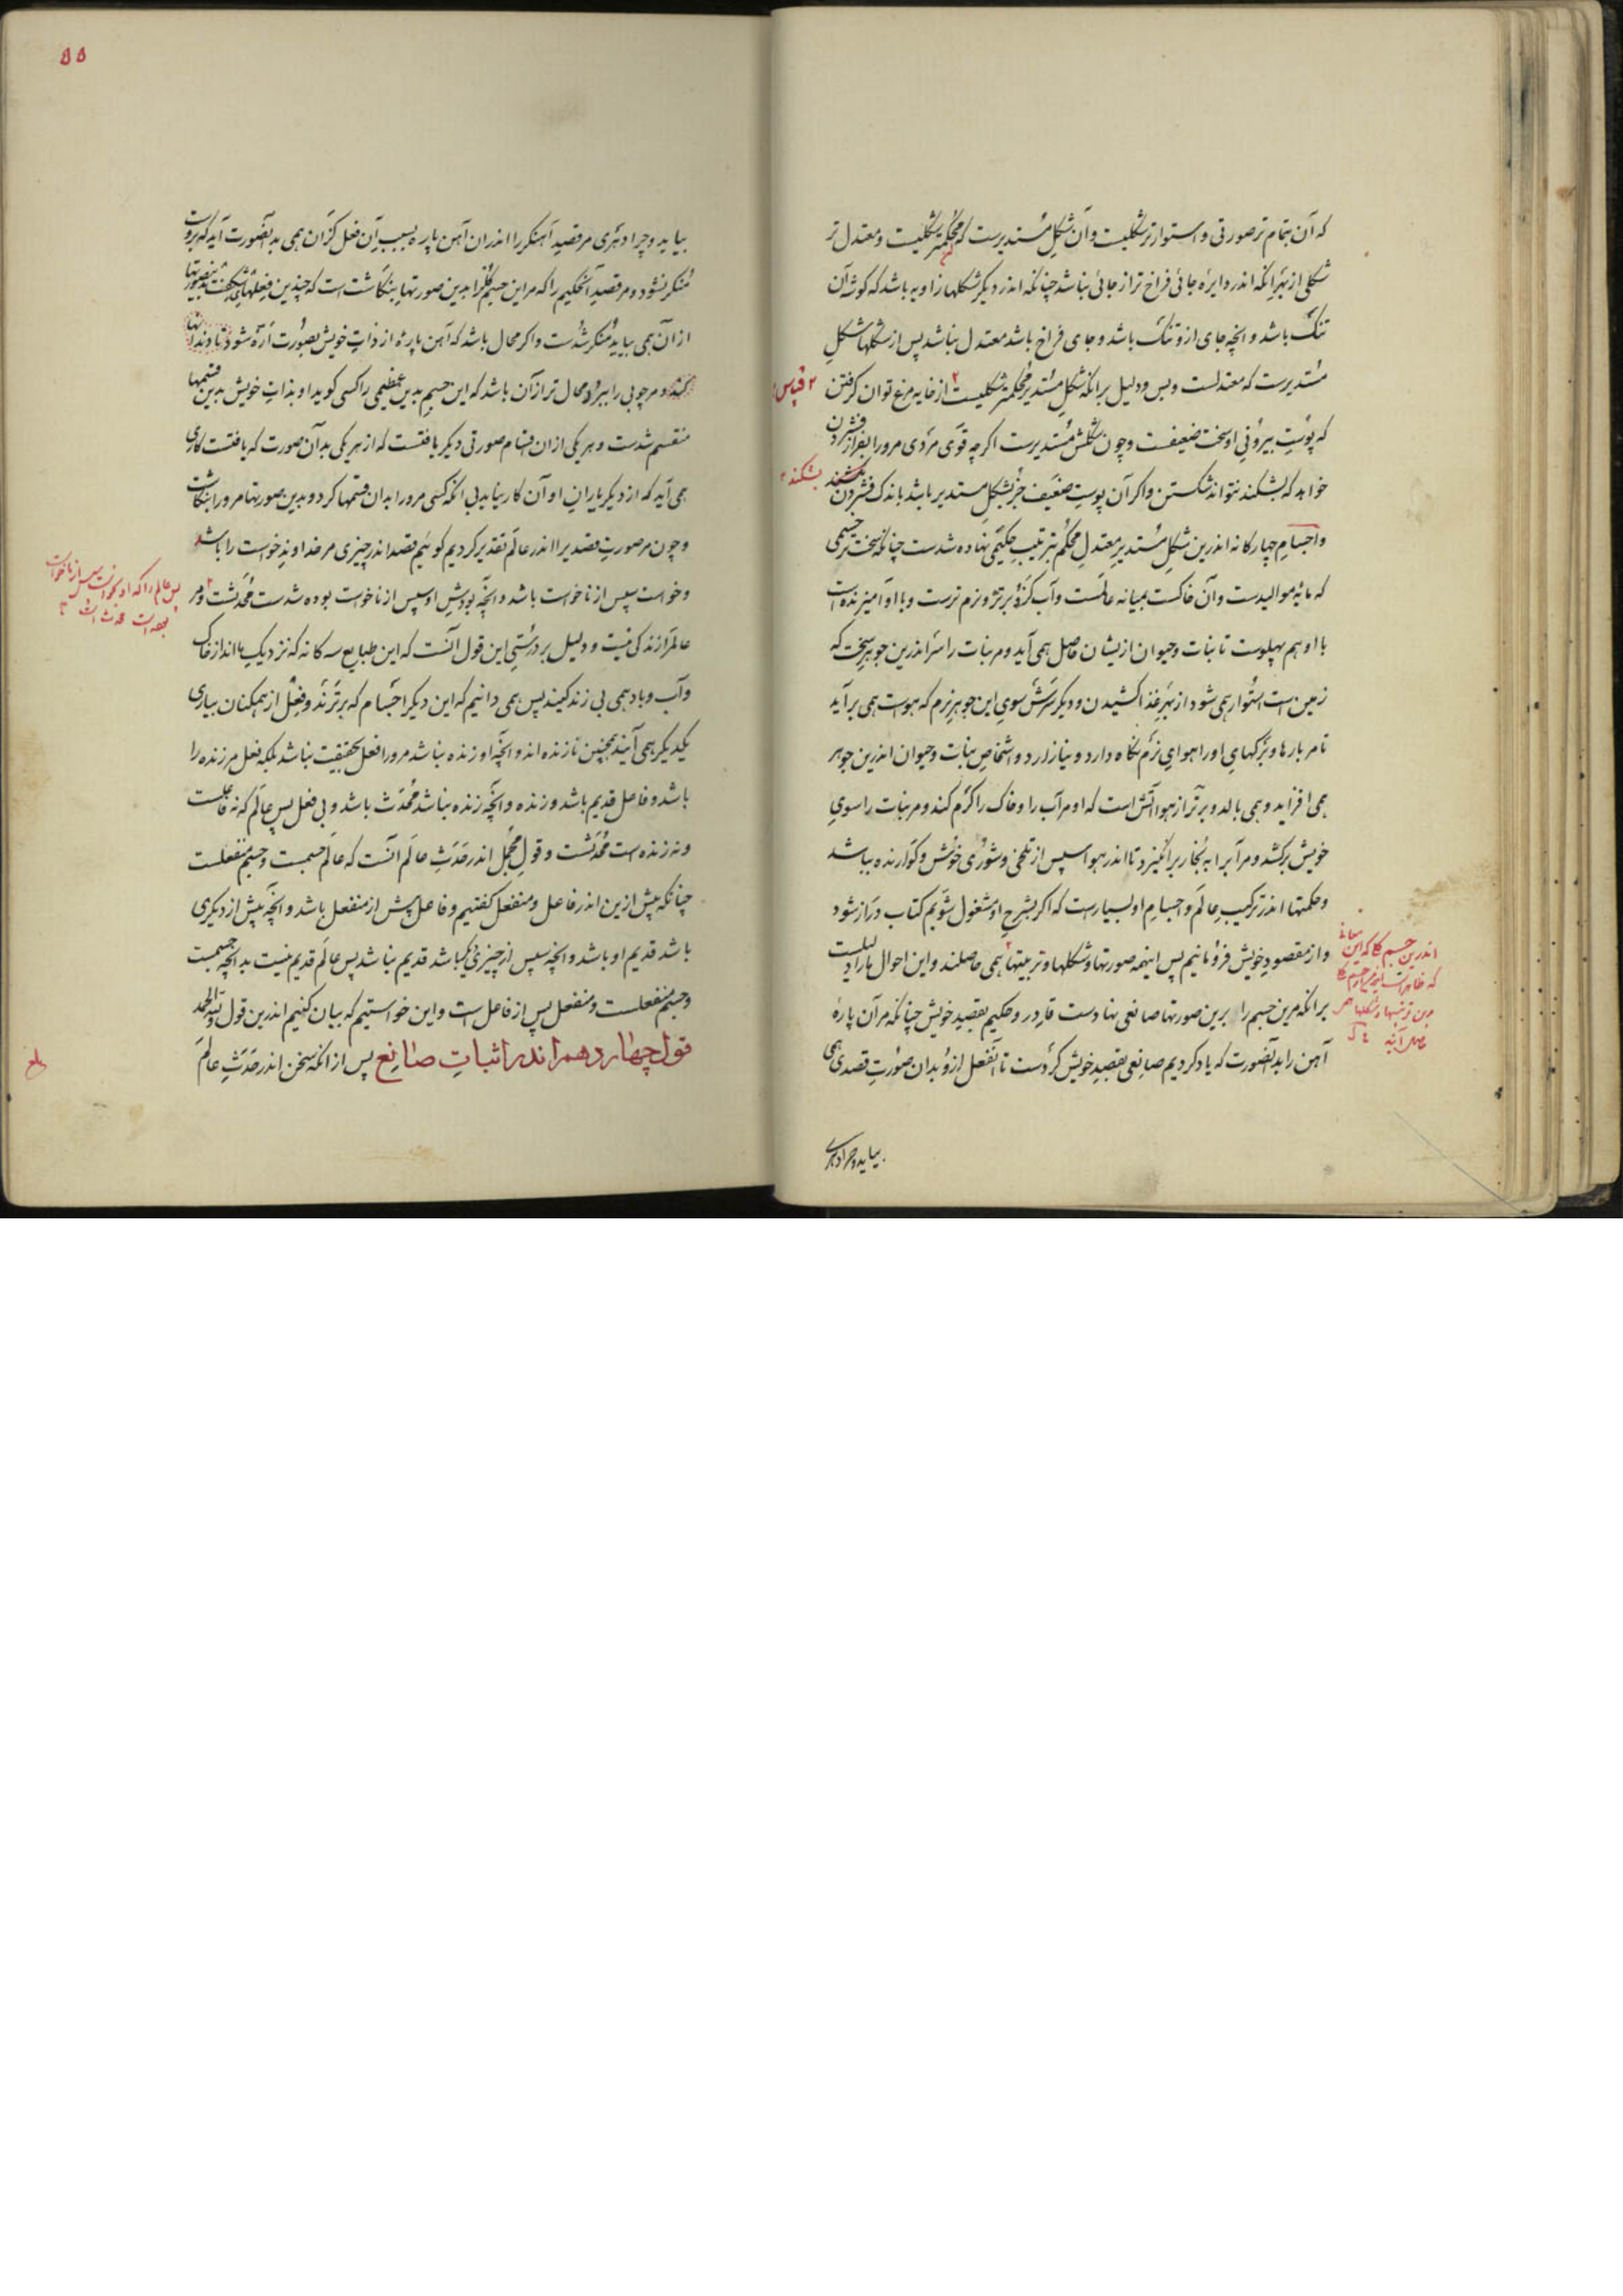 که آن بتمام تر صورتی و استوارتر شکلیست و آن شکل مستدیرست که محکمتر شکلیست و معتدل تر
شکلی از بهر آنکه اندر دایره جائی فراخ تر از جائی نباشد چنانکه اندر دیگر شکلها زاویه باشد که گوشه آن
تنگ باشد و انچه جای ازو تنگ باشد و جای فراخ باشد معتدل نباشد پس از شکلها شکل
مستدیرست که معتدلست و بس و دلیل بر انکه شکل مستدیر محکمتر شکلیست از خایه مرغ توان گرفتن
۲ قیاس
که پوست بیرونی او سخت ضعیفست و چون شکلش مستدیرست اگرچه قوی مردی مرورا بفراز فشردن
خواهد که بشکند نتواند شکستن و اگر آن پوست ضعیف جز بشکل مستدیر باشد باندک فشردن بشکند
بشکند
و اجسام چهارگانه اندرین شکل مستدیر معتدل محکم بترتیب حکیمی نهاده شدست چنانکه سخت تر جسمی
که مایه موالیدست و آن خاکست بمیانه عالمست و آب کزو برتر و نرم ترست و با او آمیزنده است
با او هم پهلوست تا نبات و حیوان ازیشان حاصل همی آید و مر نبات را سر اندرین جوهر سخت که
زمین است استوار همی شود از بهر غذا کشیدن و دیگر سرش سوی این جوهر نرم که هواست همی برآید
تا مر بارها و برگهای او را هوای نرم نگاه دارد و نیازارد و اشخاص نبات و حیوان اندرین جوهر
همی افزاید و همی بالد و برتر از هوا آتش است که او مر آب را و خاک را گرم کند و مر نبات را سوی
خویش برکشد و مر آب را به بخار برانگیزد تا اندر هوا سپس از تلخی و شوری خوش و گوارنده بباشد
و حکمتها اندر ترکیب عالم و اجسام او بسیارست که اگر بشرح او مشغول شویم کتاب دراز شود
و از مقصود خویش فرو مانیم پس اینهمه صورتها و شکلها و تربیتها همی حاصلند و این احوال ما را دلیلست
بر انکه مرین جسم را برین صورتها صانعی نهادست قادر و حکیم بقصد خویش چنانکه مر آن پاره
آهن را بدان صورت که یاد کردیم صانعی بقصد خویش کردست تا آن فعل ازو بدان صورت قصدی همی
اندرین جسم
بیاید و چرا دهری
۵۵
بیاید و چرا دهری مر قصد آهنگر را اندران آهن پاره بسبب آن فعل کزان همی بدان صورت آید که بروست
منکر نشود و مر قصد آن حکیم را که مر این جسم کلی را بدین صورتها بنگاشت است که چندین فعلهای شگفت بدین صورتها
از آن همی بیاید منکر شدست و اگر محال باشد که آهن پاره از ذات خویش بصورت اره شود تا دندانها
کند و مر چوبی را ببرد محال تر از آن باشد که این جسم بدین عظیمی را کسی گوید او بذات خویش بدین قسمها
منقسم شدست و هر یکی ازان اقسام صورتی دیگر یافتست که از هر یکی بدان صورت که یافتست کاری
همی آید که از دیگر یاران او آن کار نیاید بی انکه کسی مرورا بدان قسمها کرد و بدین صورتها مرورا بنگاشت
و چون مر صورت قصدی را اندر عالم تقدیر کردیم گوئیم قصد اندر چیزی مر خداوند خواست را باشد
و خواست سپس از ناخواست باشد و انچه بودش او سپس از ناخواست بوده شدست محدثست و مر
پس عالم را که او
عالم را زندگی نیست و دلیل بر درستی این قول آنست که این طبایع سه گانه که نزدیک ماند از خاک
و آب و باد همی بی زندگیند پس همی دانیم که این دیگر اجسام که برترند و فعل از همگنان بیاری
یکدیگر همی آیند همچنین نازنده اند و انچه او زنده نباشد مرورا فعل بحقیقت نباشد بلکه فعل مر زنده را
باشد و فاعل قدیم باشد و زنده و انچه زنده نباشد محدث باشد و بی فعل پس عالم که نه فاعلست
و نه زنده است محدثست و قول مجمل اندر حدث عالم آنست که عالم جسمست و جسم منفعلست
چنانکه پیش ازین اندر فاعل و منفعل گفتیم و فاعل پیش از منفعل باشد و انچه پیش از دیگری
باشد قدیم او باشد و انچه سپس از چیزی دیگر باشد قدیم نباشد پس عالم قدیم نیست بدانچه جسمست
و جسم منفعلست و منفعل پس از فاعل است و این خواستیم که بیان کنیم اندرین قول ولله الحمد
قول چهاردهم اندر اثبات صانع پس از انکه سخن اندر حدث عالم